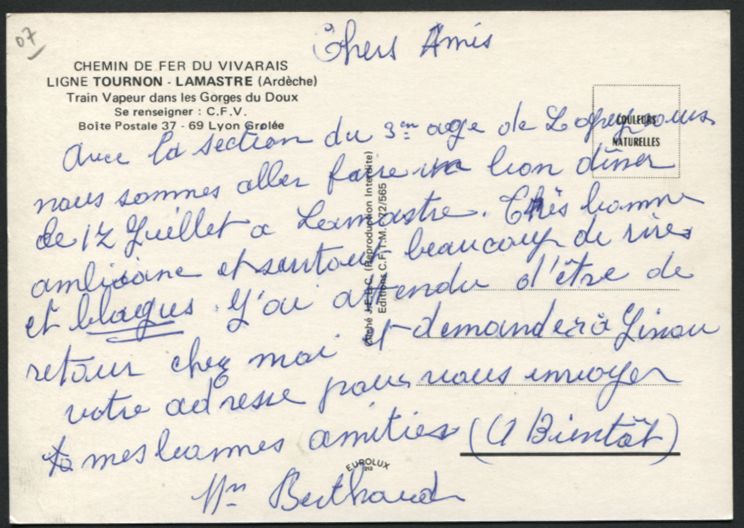 07
Chers Amis
CHEMIN DE FER DU VIVARAIS
LIGNE TOURNON - LAMASTRE (Ardèche)
Train Vapeur dans les Gorges du Doux
Se renseigner : C.F.V.
Boîte Postale 37 - 69 Lyon Grolée
COULEURS
NATURELLES
Avec la section du 3em age de
nous sommes aller faire un bon dîner
le 12 Juillet a Lamastre. Très bonne
ambiance et surtout beaucoup de rires
et blagues. J'ai attendu d'être de
retour chez moi et demander à
votre adresse pour vous envoyer
mes bonnes amitiés (A Bientôt)
Mm Berthaud
(Reproduction Interdite)
Editions C.F.T.M. 272/565
EUROLUX